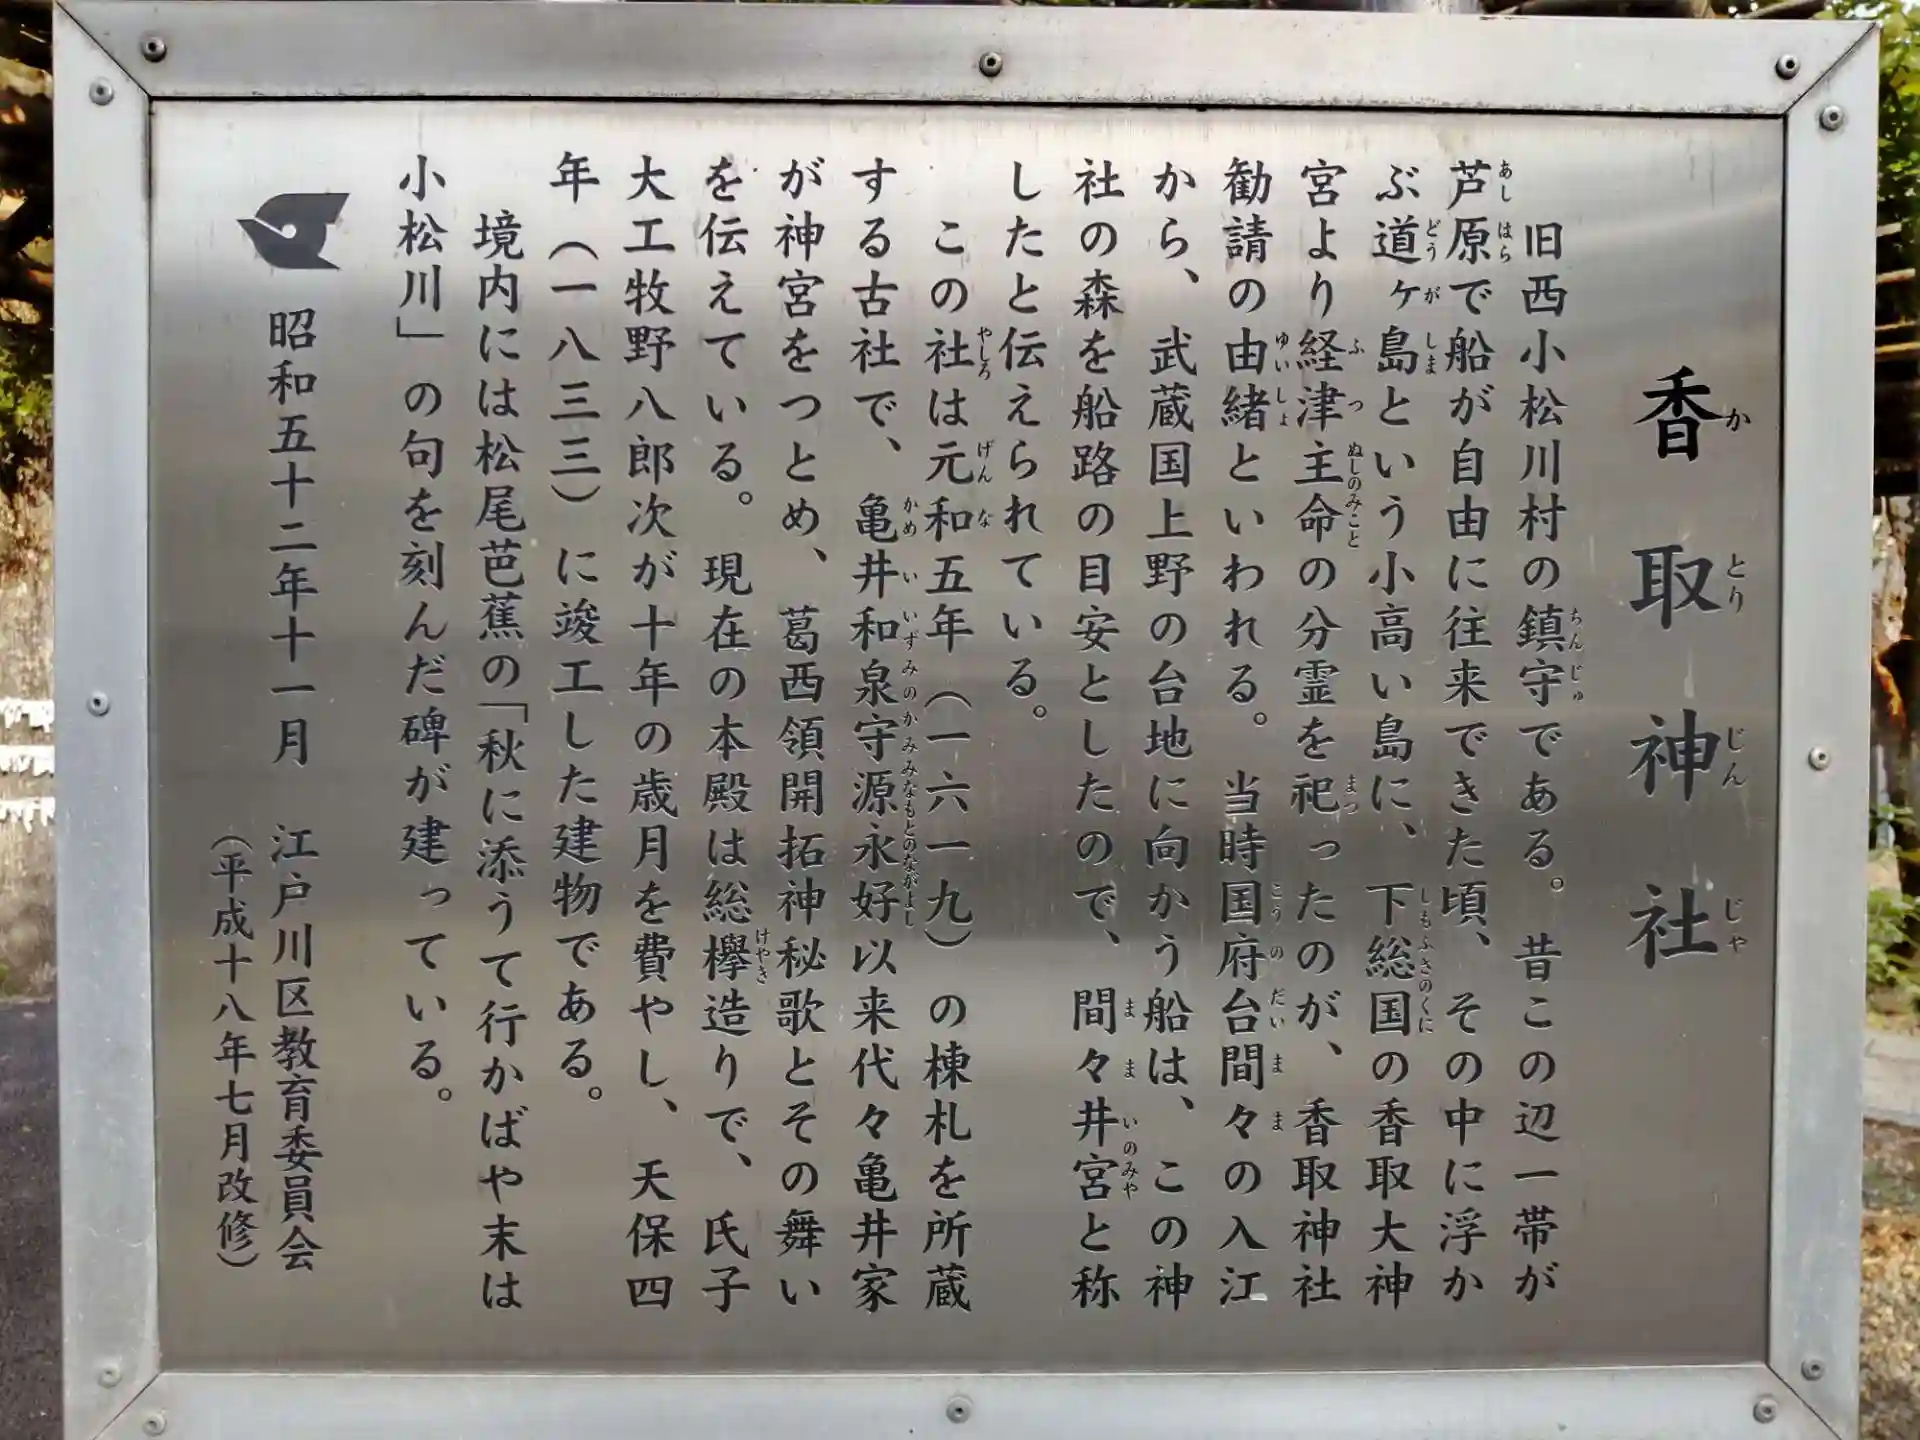 香取神社
旧西小松川村の鎮守である。昔この辺一帯が
芦原で船が自由に往来できた頃、その中に浮か
ぶ道ヶ島という小高い島に、下総国の香取大神
宮より経津主命の分霊を祀ったのが、香取神社
勧請の由緒といわれる。当時国府台間々の入江
から、武蔵国上野の台地に向かう船は、この神
社の森を船路の目安としたので、間々井宮と称
したと伝えられている。
この社は元和五年(一六一九)の棟札を所蔵
する古社で、亀井和泉守源永好以来代々亀井家
が神宮をつとめ、葛西領開拓神秘歌とその舞い
を伝えている。現在の本殿は総欅造りで、氏子
大工牧野八郎次が十年の歳月を費やし、天保四
年(一八三三)に竣工した建物である。
境内には松尾芭蕉の「秋に添うて行かばや末は
小松川」の句を刻んだ碑が建っている。
昭和五十二年十一月 江戸川区教育委員会
(平成十八年七月改修)